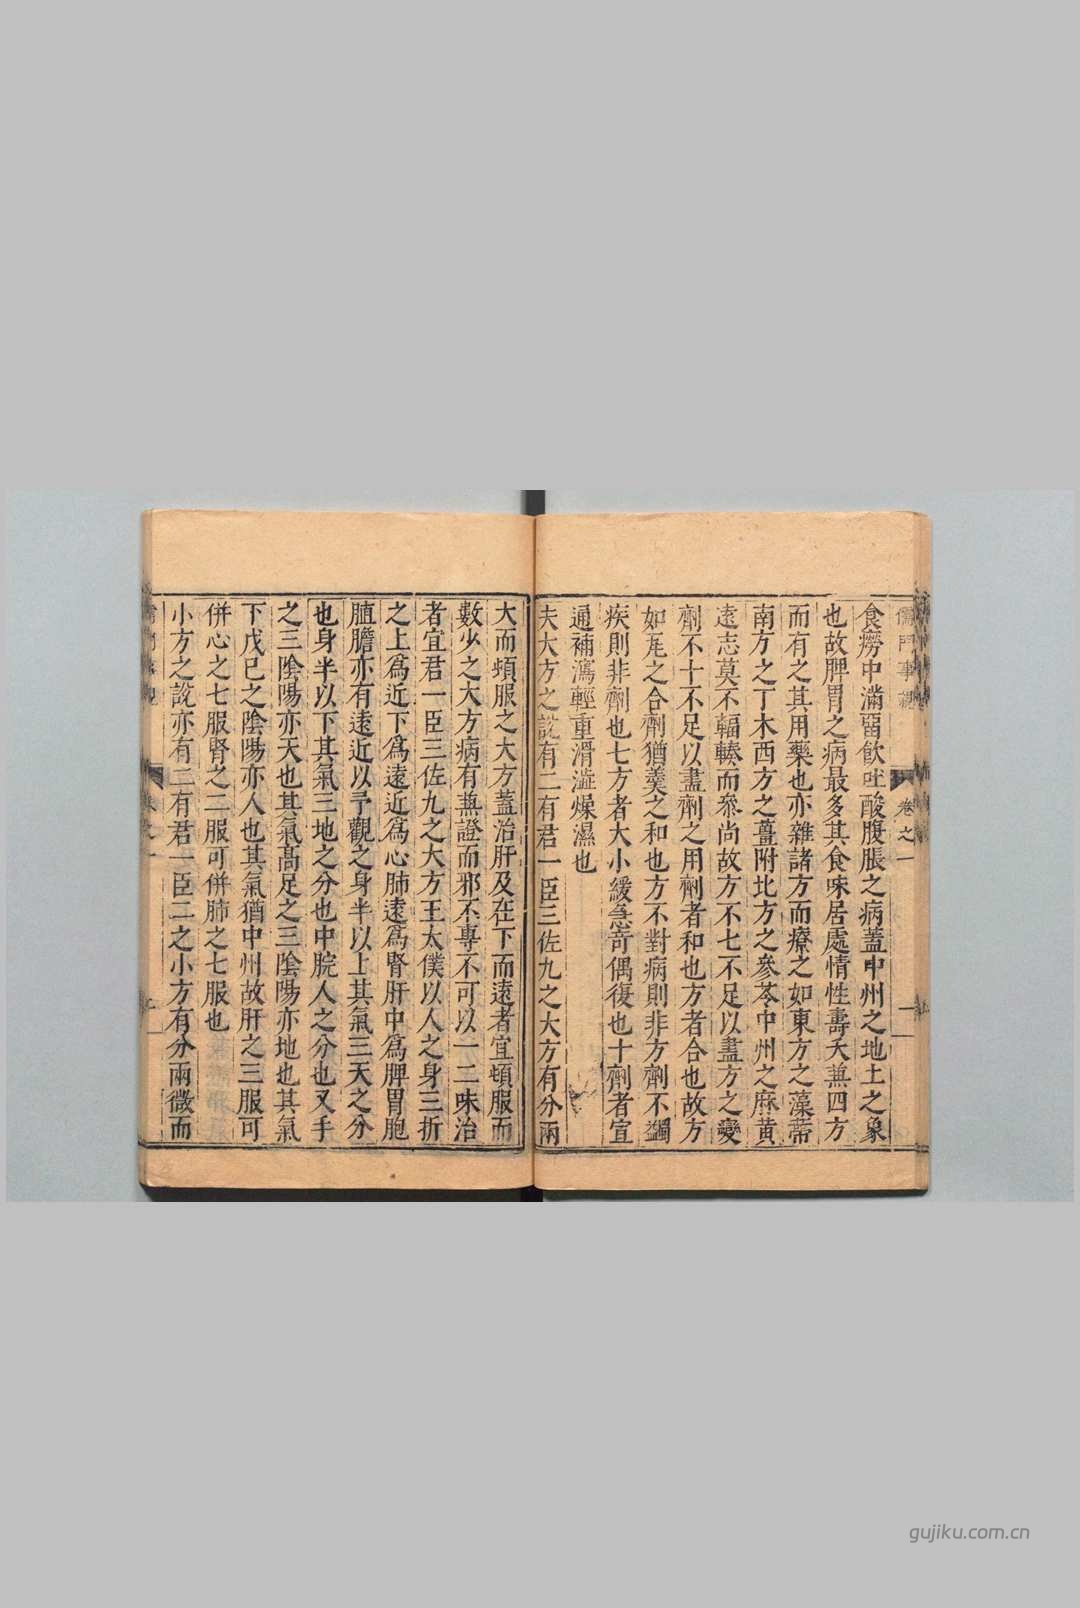 儒門事親
卷之一
食癆中滿留飲吐酸腹脹之病蓋中州之地土之象
也故脾胃之病最多其食味居處情性壽夭兼四方
而有之其用藥也亦雜諸方而療之如東方之藻蔕
南方之丁木西方之薑附北方之參苓中州之麻黃
遠志莫不輻輳而參尚故方不七不足以盡方之變
劑不十不足以盡劑之用劑者和也方者合也故方
如瓦之合劑猶羹之和也方不對病則非方劑不蠲
疾則非劑也七方者大小緩急奇偶復也十劑者宣
通補瀉輕重滑澁燥濕也
夫大方之說有二有君一臣三佐九之大方有分兩
大而頓服之大方蓋治肝及在下而遠者宜頓服而
數少之大方病有兼證而邪不專不可以一二味治
者宜君一臣三佐九之大方王太僕以人之身三折
之上爲近下爲遠近爲心肺遠爲腎肝中爲脾胃胞
䐈膽亦有遠近以予觀之身半以上其氣三天之分
也身半以下其氣三地之分也中脘人之分也又手
之三陰陽亦天也其氣高足之三陰陽亦地也其氣
下戊己之陰陽亦人也其氣猶中州故肝之三服可
併心之七服腎之二服可併肺之七服也
小方之說亦有二有君一臣二之小方有分兩微而
gujiku.com.cn